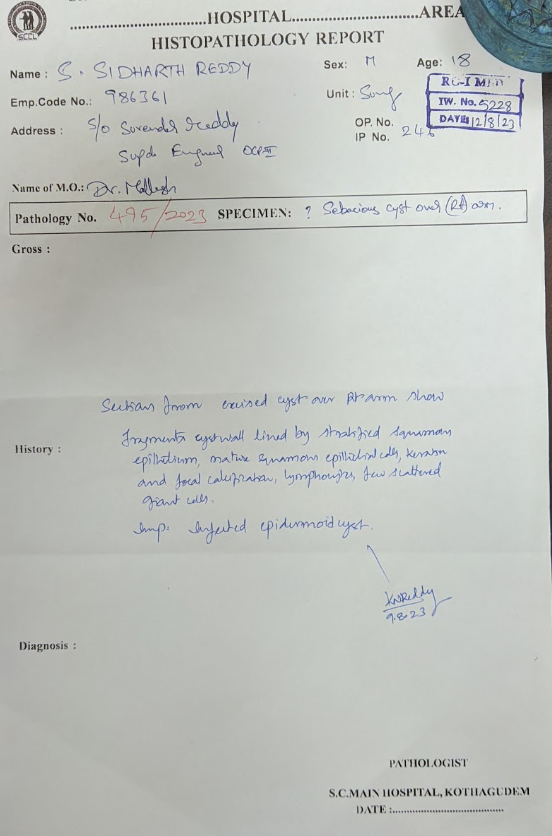 SCCL
....................HOSPITAL....................AREA
HISTOPATHOLOGY REPORT
Name : S. SIDHARTH REDDY Sex: M Age: 18
Emp.Code No.: 986361 Unit: Surg
Address : S/o Surender Reddy OP. No.
IP No. 246
Supdt Engineer OCP-III
IW. No. 5228
DATE 12/8/23
Name of M.O.: Dr. Mallesh
Pathology No. 495/2023 SPECIMEN: ? Sebacious cyst over (Rt) arm.
Gross :
Sections from excised cyst over Rt arm show
fragments cyst wall lined by stratified squamous
History :
epithelium, mature squamous epithelial cells, keratin
and focal calcification, lymphocytes, few scattered
giant cells.
Imp: Infected epidermoid cyst.
KNReddy
9.8.23
Diagnosis :
PATHOLOGIST
S.C.MAIN HOSPITAL, KOTHAGUDEM
DATE :....................